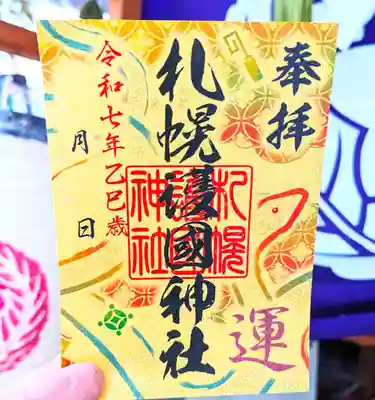 奉拝
札幌護國神社
札幌
護國
神社
運
令和七年乙巳歳
月 日